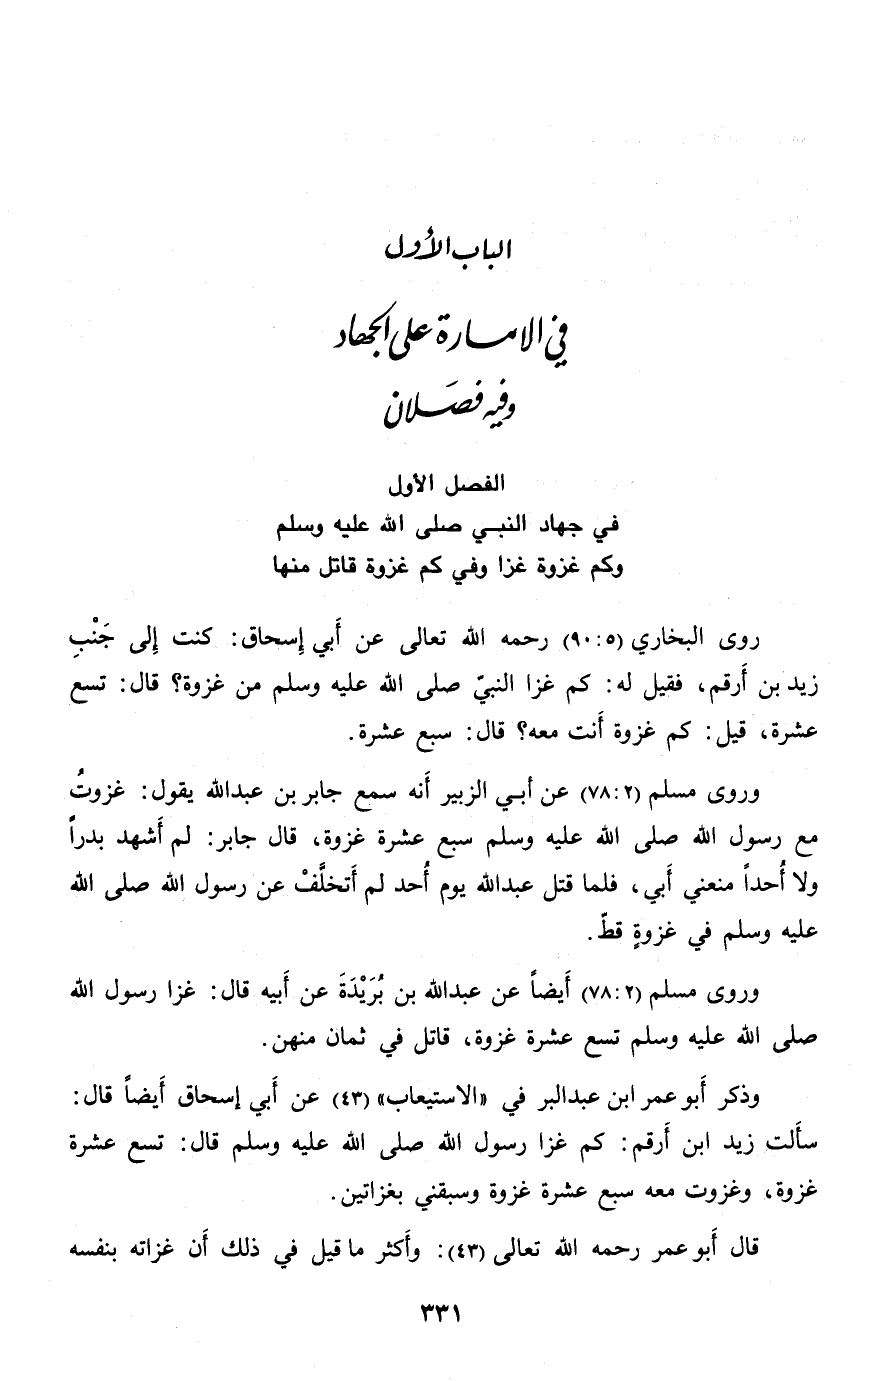 الباب الأول
في الامارة على الجهاد
وفيه فصَلان
الفصل الأول
في جهاد النبي صلى الله عليه وسلم
وكم غزوة غزا وفي كم غزوة قاتل منها
روى البخاري (٥:٩٠) رحمه الله تعالى عن أَبي إِسحاق: كنت إِلى جَنْبِ
زيد بن أَرقم، فقيل له: كم غزا النبيّ صلى الله عليه وسلم من غزوة؟ قال: تسع
عشرة، قيل: كم غزوة أَنت معه؟ قال: سبع عشرة.
وروى مسلم (٢:٧٨) عن أَبي الزبير أَنه سمع جابر بن عبدالله يقول: غزوتُ
مع رسول الله صلى الله عليه وسلم سبع عشرة غزوة، قال جابر: لم أَشهد بدراً
ولا أُحداً منعني أَبي، فلما قتل عبدالله يوم أُحد لم أَتخلَّفْ عن رسول الله صلى الله
عليه وسلم في غزوةٍ قطّ.
وروى مسلم (٢:٧٨) أَيضاً عن عبدالله بن بُرَيْدَةَ عن أَبيه قال: غزا رسول الله
صلى الله عليه وسلم تسع عشرة غزوة، قاتل في ثمان منهن.
وذكر أَبو عمر ابن عبدالبر في «الاستيعاب» (٤٣) عن أَبي إِسحاق أَيضاً قال:
سأَلت زيد ابن أَرقم: كم غزا رسول الله صلى الله عليه وسلم قال: تسع عشرة
غزوة، وغزوت معه سبع عشرة غزوة وسبقني بغزاتين.
قال أَبو عمر رحمه الله تعالى (٤٣): وأَكثر ما قيل في ذلك أَن غزاته بنفسه
٣٣١